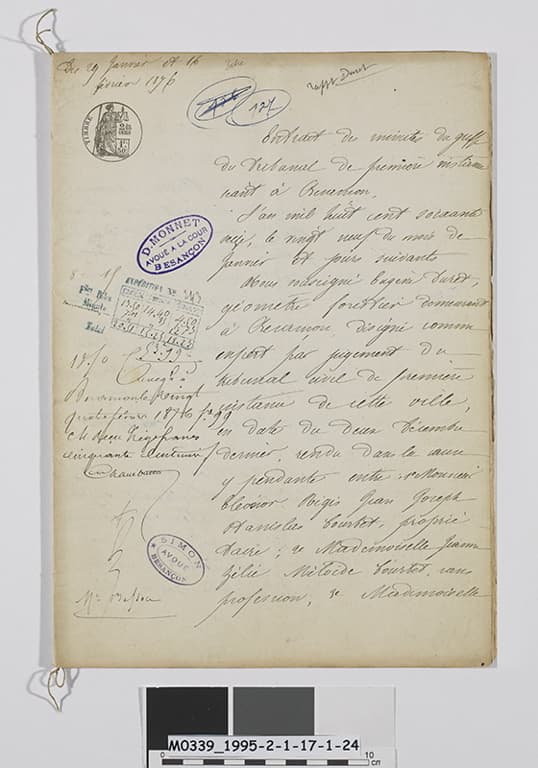 Des 29 Janvier et 16
février 1876
rappt Duret
127
TIMBRE
D. MONNET
AVOUÉ A LA COUR
BESANÇON
Extrait des minutes du greffe
du tribunal de première instance
séant à Besançon.
L'an mil huit cent soixante
seize, le vingt neuf du mois de
Janvier et jours suivants
Nous soussigné Eugène Duret,
géomètre forestier demeurant
à Besançon, désigné comme
expert par jugement du
tribunal civil de première
instance de cette ville,
en date du deux Décembre
dernier, rendu dans la cause
y pendante entre 1° Monsieur
Eléonor Régis Jean Joseph
Stanislas Courbet, proprié-
taire; 2° Mademoiselle Jeanne
Zélie Mélaïde Courbet, sans
profession, 3° Mademoiselle
EXPÉDITION
Total
53.99
Enregé à
quatre février 1876
cinquante centimes
SIMON
AVOUÉ
BESANÇON
M0339_1995-2-1-17-1-24
0 10
cm